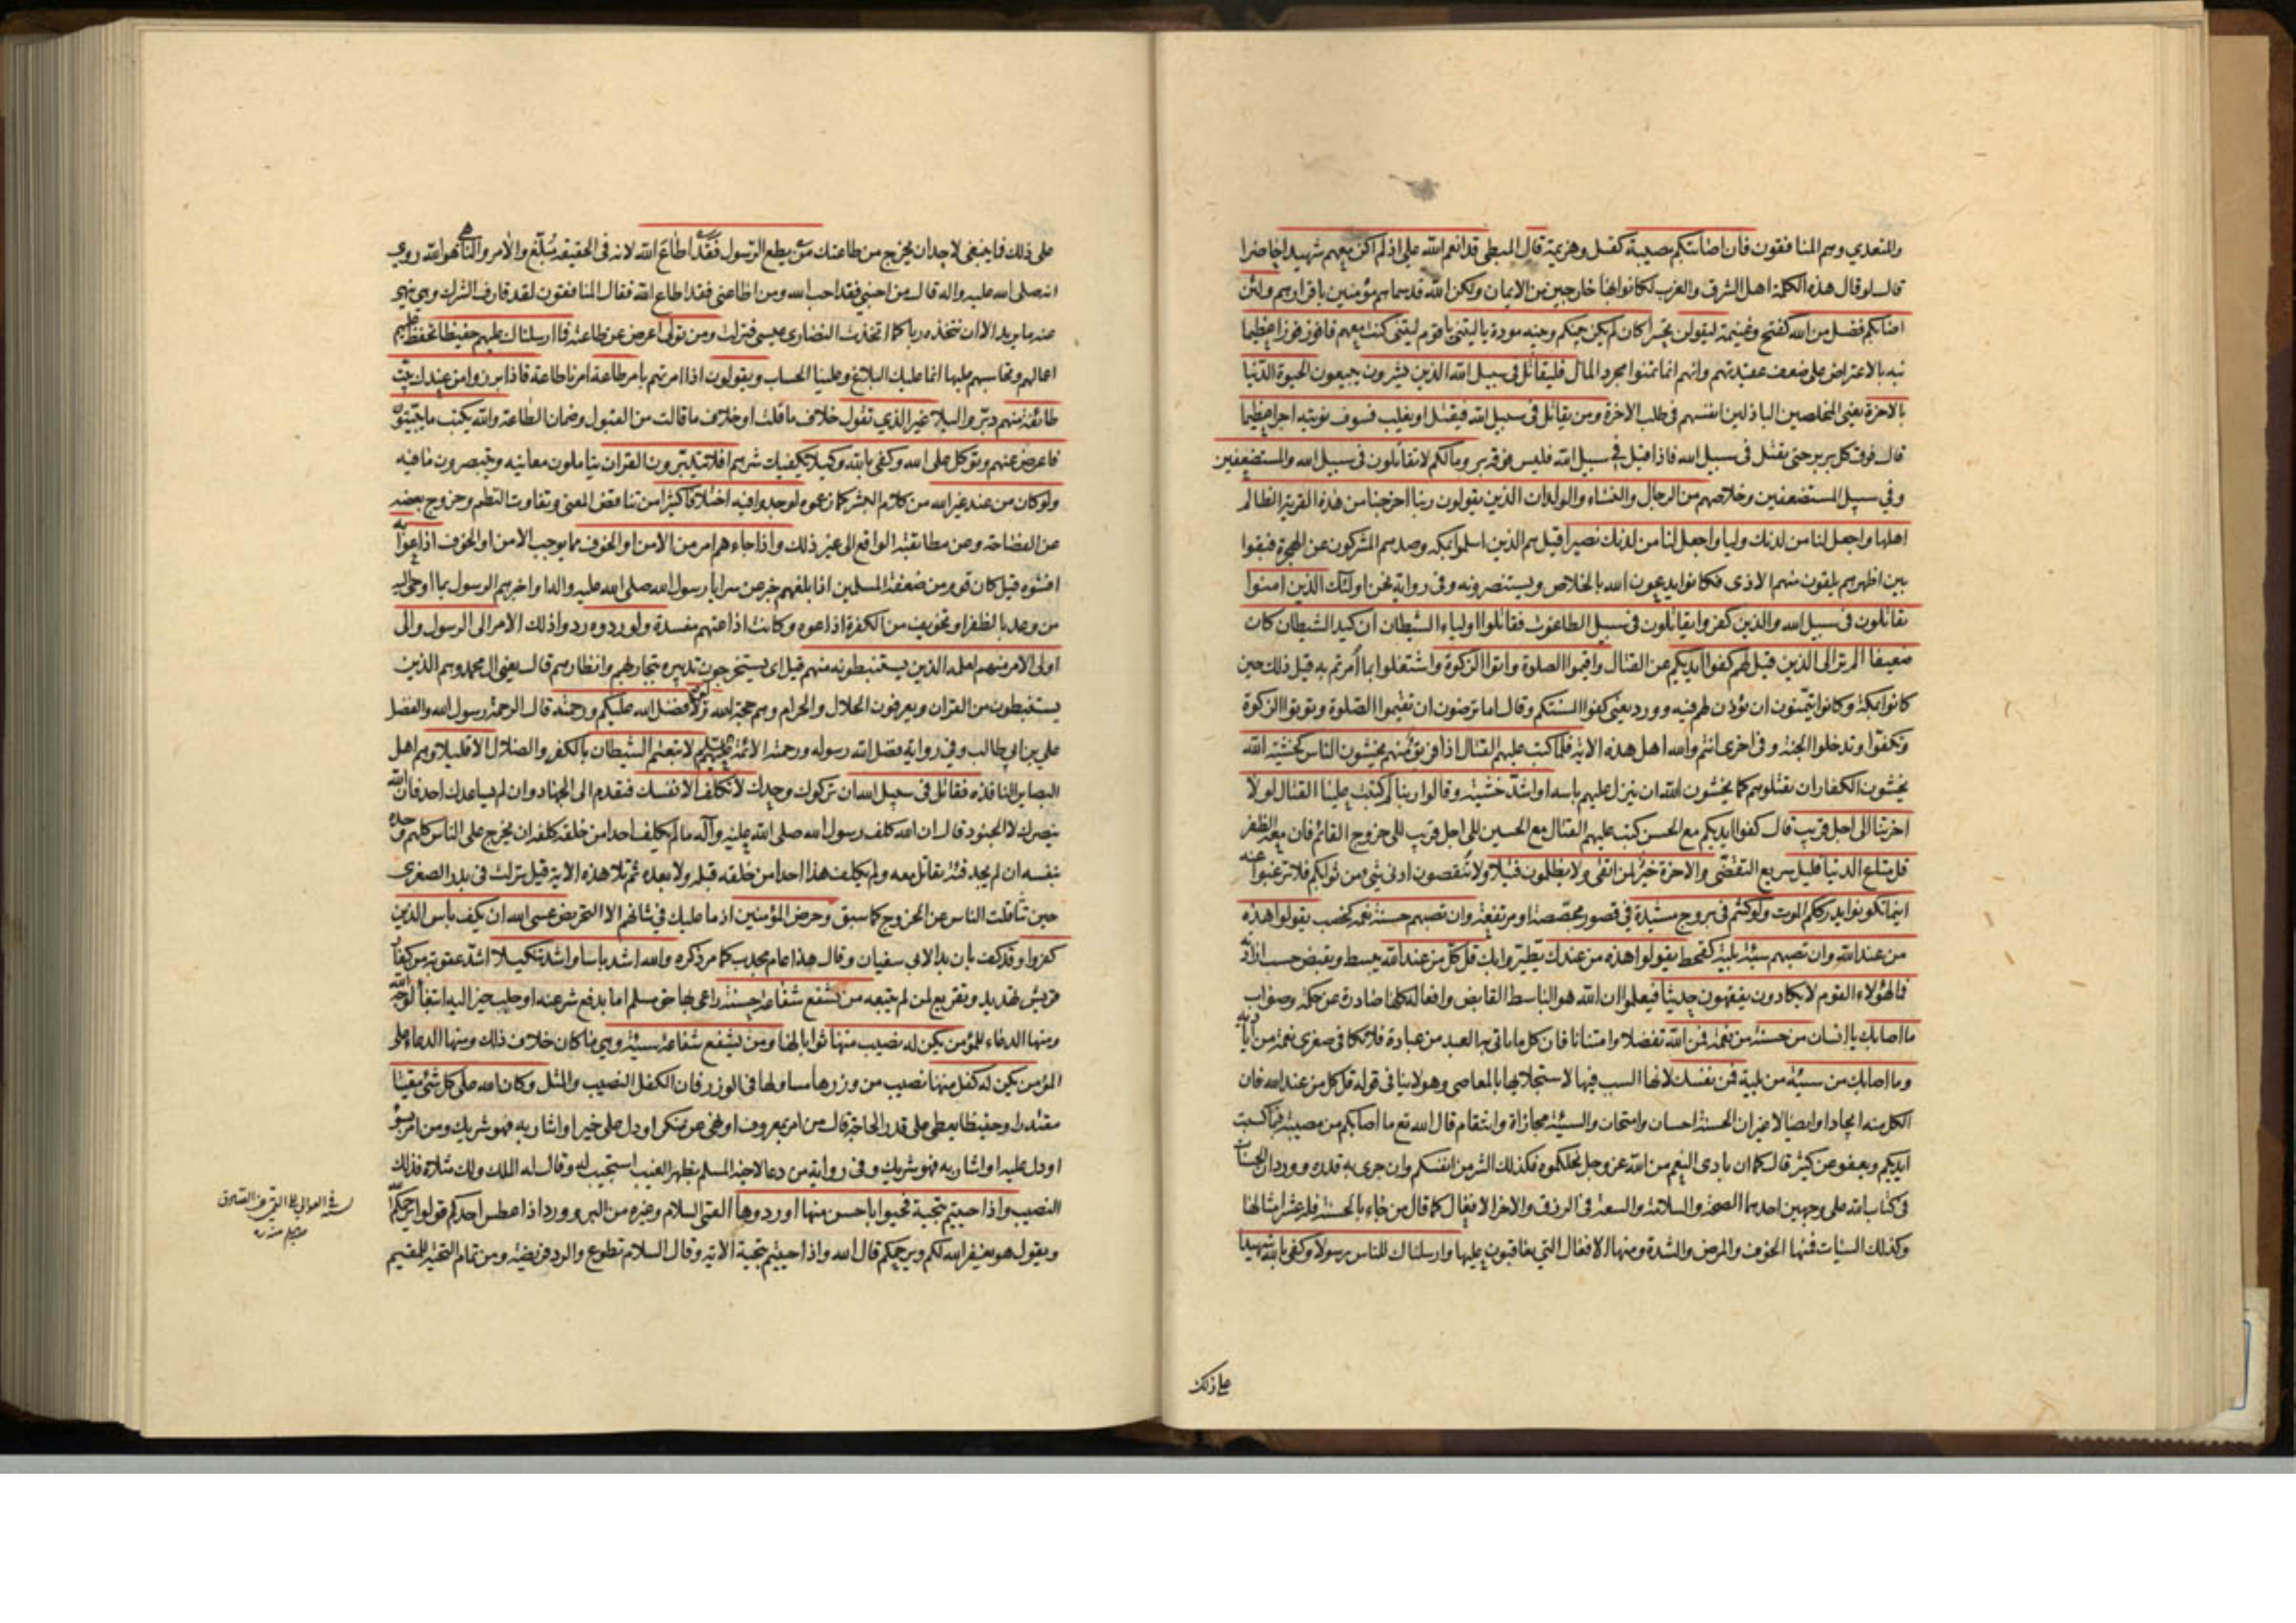 والمتعدي وهم المنافقون فان اصابتكم مصيبة كقتل وهزيمة قال المبطي قد انعم الله علي اذ لم اكن معهم شهيدا حاضرا
قال لو قال هذه الكلمة اهل الشرق والغرب لكانوا بها خارجين من الايمان ولكن الله قد سماهم مؤمنين باقرارهم ولئن
اصابكم فضل من الله كفتح وغنيمة ليقولن تحسرا كان لم يكن بينكم وبينه مودة يا ليتني يا قوم ليتني كنت معهم فافوز فوزا عظيما
نبه بالاعتراض على ضعف عقيدتهم وانهم انما تمنوا مجرد المال فليقاتل في سبيل الله الذين يشرون يبيعون الحيوة الدنيا
بالاخرة يعني المخلصين الباذلين انفسهم في طلب الاخرة ومن يقاتل في سبيل الله فيقتل او يغلب فسوف نؤتيه اجرا عظيما
قال فوق كل بر بر حتى يقتل في سبيل الله فاذا قتل في سبيل الله فليس فوقه بر ومالكم لا تقاتلون في سبيل الله والمستضعفين
وفي سبيل المستضعفين وخلاصهم من الرجال والنساء والولدان الذين يقولون ربنا اخرجنا من هذه القرية الظالم
اهلها واجعل لنا من لدنك وليا واجعل لنا من لدنك نصيرا قيل هم الذين اسلموا بمكة وصدهم المشركون عن الهجرة فبقوا
بين اظهرهم يلقون منهم الاذى فكانوا يدعون الله بالخلاص ويستنصرونه وفي رواية نحن اولئك الذين امنوا
يقاتلون في سبيل الله والذين كفروا يقاتلون في سبيل الطاغوت فقاتلوا اولياء الشيطان ان كيد الشيطان كان
ضعيفا الم تر الى الذين قيل لهم كفوا ايديكم عن القتال واقيموا الصلوة واتوا الزكوة واشتغلوا بما امرتم به قيل ذلك حين
كانوا بمكة وكانوا يتمنون ان يؤذن لهم فيه وورد يعني كفوا السنتكم وقال اما ترضون ان تقيموا الصلوة وتؤتوا الزكوة
وتكفوا وتدخلوا الجنة وفي اخرى انتم والله اهل هذه الاية فلما كتب عليهم القتال اذا فريق منهم يخشون الناس كخشية الله
يخشون الكفار ان يقتلوهم كما يخشون الله ان ينزل عليهم باسه او اشد خشية وقالوا ربنا لم كتبت علينا القتال لولا
اخرتنا الى اجل قريب قال كفوا ايديكم مع الحسن كتب عليهم القتال مع الحسين الى اجل قريب الى خروج القائم فان معه الظفر
قل متاع الدنيا قليل سريع التقضي والاخرة خير لمن اتقى ولا يظلمون فتيلا ولا تنقصون ادنى شيء من ثوابكم فلا ترغبوا عنه
اينما تكونوا يدرككم الموت ولو كنتم في بروج مشيدة في قصور مجصصة او مرتفعة وان تصبهم حسنة نعمة كخصب يقولوا هذه
من عند الله وان تصبهم سيئة بلية كقحط يقولوا هذه من عندك يطيروا بك قل كل من عند الله يبسط ويقبض حسب ارادته
فما لهؤلاء القوم لا يكادون يفقهون حديثا فيعلموا ان الله هو الباسط القابض وافعاله كلها صادرة عن حكمة وصواب
ما اصابك يا انسان من حسنة من نعمة فمن الله تفضلا وامتنانا فان كل ما ياتي به العبد من عبادة فلا يكافي صغرى نعمة من اياديه
وما اصابك من سيئة من بلية فمن نفسك لانها السبب فيها لاستجلابها بالمعاصي وهو لا ينافي قوله قل كل من عند الله فان
الكل منه ايجادا وايصالا غير ان الحسنة احسان وامتحان والسيئة مجازاة وانتقام قال الله تع ما اصابكم من مصيبة فبما كسبت
ايديكم ويعفو عن كثير قال كما ان بادي النعم من الله عز وجل نحلكموه فكذلك الشر من انفسكم وان جرى به قدره وورد ان الحسنات
في كتاب الله على وجهين احدهما الصحة والسلامة والسعة في الرزق والاخر الافعال كما قال من جاء بالحسنة فله عشر امثالها
وكذلك السيئات فمنها الخوف والمرض والشدة ومنها الافعال التي يعاقبون عليها وارسلناك للناس رسولا وكفى بالله شهيدا
على ذلك
على ذلك فما ينبغي لاحد ان يخرج من طاعتك من يطع الرسول فقد اطاع الله لانه في الحقيقة مبلغ والامر والناهي هو الله روي
انه صلى الله عليه واله قال من احبني فقد احب الله ومن اطاعني فقد اطاع الله فقال المنافقون لقد قارف الشرك وهو ينهى
عنه ما يريد الا ان نتخذه ربا كما اتخذت النصارى عيسى فنزلت ومن تولى اعرض عن طاعته فما ارسلناك عليهم حفيظا تحفظ عليهم
اعمالهم وتحاسبهم عليها انما عليك البلاغ وعلينا الحساب ويقولون اذا امرتهم بامر طاعة امرنا طاعة فاذا برزوا من عندك بيت
طائفة منهم دبر والبلا غير الذي تقول خلاف ما قلت او خلاف ما قالت من القبول وضمان الطاعة والله يكتب ما يبيتون
فاعرض عنهم وتوكل على الله وكفى بالله وكيلا يكفيك شرهم افلا يتدبرون القران يتاملون معانيه ويتبصرون ما فيه
ولو كان من عند غير الله من كلام البشر كما زعموه لوجدوا فيه اختلافا كثيرا من تناقض المعنى وتفاوت النظم وخروج بعضه
عن الفصاحة وعن مطابقة الواقع الى غير ذلك واذا جاءهم امر من الامن او الخوف مما يوجب الامن او الخوف اذاعوا به
افشوه قيل كان قوم من ضعفة المسلمين اذا بلغهم خبر عن سرايا رسول الله صلى الله عليه واله او اخبرهم الرسول بما اوحي اليه
من وعد بالظفر او تخويف من الكفرة اذاعوه وكانت اذاعتهم مفسدة ولو ردوه ردوا ذلك الامر الى الرسول والى
اولي الامر منهم لعلمه الذين يستنبطونه منهم قيل اي يستخرجون تدبيره بتجاربهم وانظارهم قال يعني ال محمد وهم الذين
يستنبطون من القران ويعرفون الحلال والحرام وهم حجة الله ولولا فضل الله عليكم ورحمته قال الرحمة رسول الله والفضل
علي بن ابي طالب وفي رواية فضل الله رسوله ورحمته الائمة عليهم السلام لاتبعتم الشيطان بالكفر والضلال الا قليلا وهم اهل
البصاير النافذة فقاتل في سبيل الله ان تركوك وحدك لا تكلف الا نفسك فتقدم الى الجهاد وان لم يساعدك احد فان الله
ينصرك لا الجنود قال ان الله كلف رسول الله صلى الله عليه وآله ما لم يكلف احدا من خلقه كلفه ان يخرج على الناس كلهم وحده
بنفسه ان لم يجد فئة يقاتل معه ولم يكلف هذا احدا من خلقه قبله ولا بعده ثم تلا هذه الاية قيل نزلت في بدر الصغرى
حين تثاقلت الناس عن الخروج كما سبق وحرض المؤمنين اذ ما عليك في شانهم الا التحريض عسى الله ان يكف باس الذين
كفروا وقد كف بان بدا لابي سفيان وقال هذا عام مجدب كما مر ذكره والله اشد باسا واشد تنكيلا اشد عقوبة من كفار
قريش تهديد وتقريع لمن لم يتبعه من يشفع شفاعة حسنة راعى بها حق مسلم اما بدفع شر عنه او جلب خير اليه ابتغاء لوجه الله
ومنها الدعاء للمؤمن يكن له نصيب منها ثوابا لها ومن يشفع شفاعة سيئة وهي ما كان خلاف ذلك ومنها الدعاء على
المؤمن يكن له كفل منها نصيب من وزرها مساو لها في الوزر فان الكفل النصيب والمثل وكان الله على كل شيء مقيتا
مقتدرا وحفيظا يعطي على قدر الحاجة قال من امر بمعروف او نهى عن منكر او دل على خير او اشار به فهو شريك ومن امر بسوء
او دل عليه او اشار به فهو شريك وفي رواية من دعا لاخيه المسلم بظهر الغيب استجيب له وقال له الملك ولك مثلاه فذلك
النصيب واذا حييتم بتحية فحيوا باحسن منها او ردوها القمي السلام وغيره من البر وورد اذا عطس احدكم قولوا يرحمكم الله
ويقول هو يغفر الله لكم ويرحمكم قال الله واذا حييتم بتحية الاية وقال السلام تطوع والرد فريضة ومن تمام التحية للمقيم